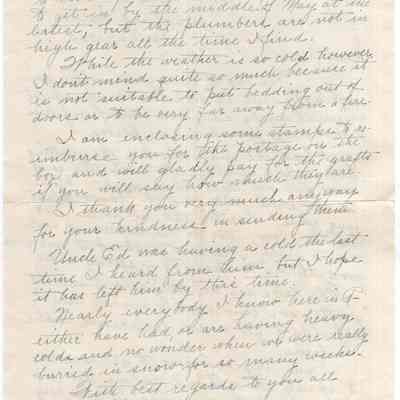 to get in by the middle of May at the
latest, but the plumbers are not in
high gear all the time I find.
While the weather is so cold however
I don't mind quite so much because it
is not suitable to put bedding out of
doors or to be very far away from a fire.
I am inclosing some stamps to re-
imburse you for the postage on the
box and will gladly pay for the grafts
if you will say how much they are.
I thank you very much anyway
for your kindness in sending them.
Uncle Ed was having a cold the last
time I heard from him but I hope
it has left him by this time.
Nearly everybody I know here in P-
either have had, or are having heavy
colds and no wonder when we were really
buried in snow for so many weeks.
With best regards to you all